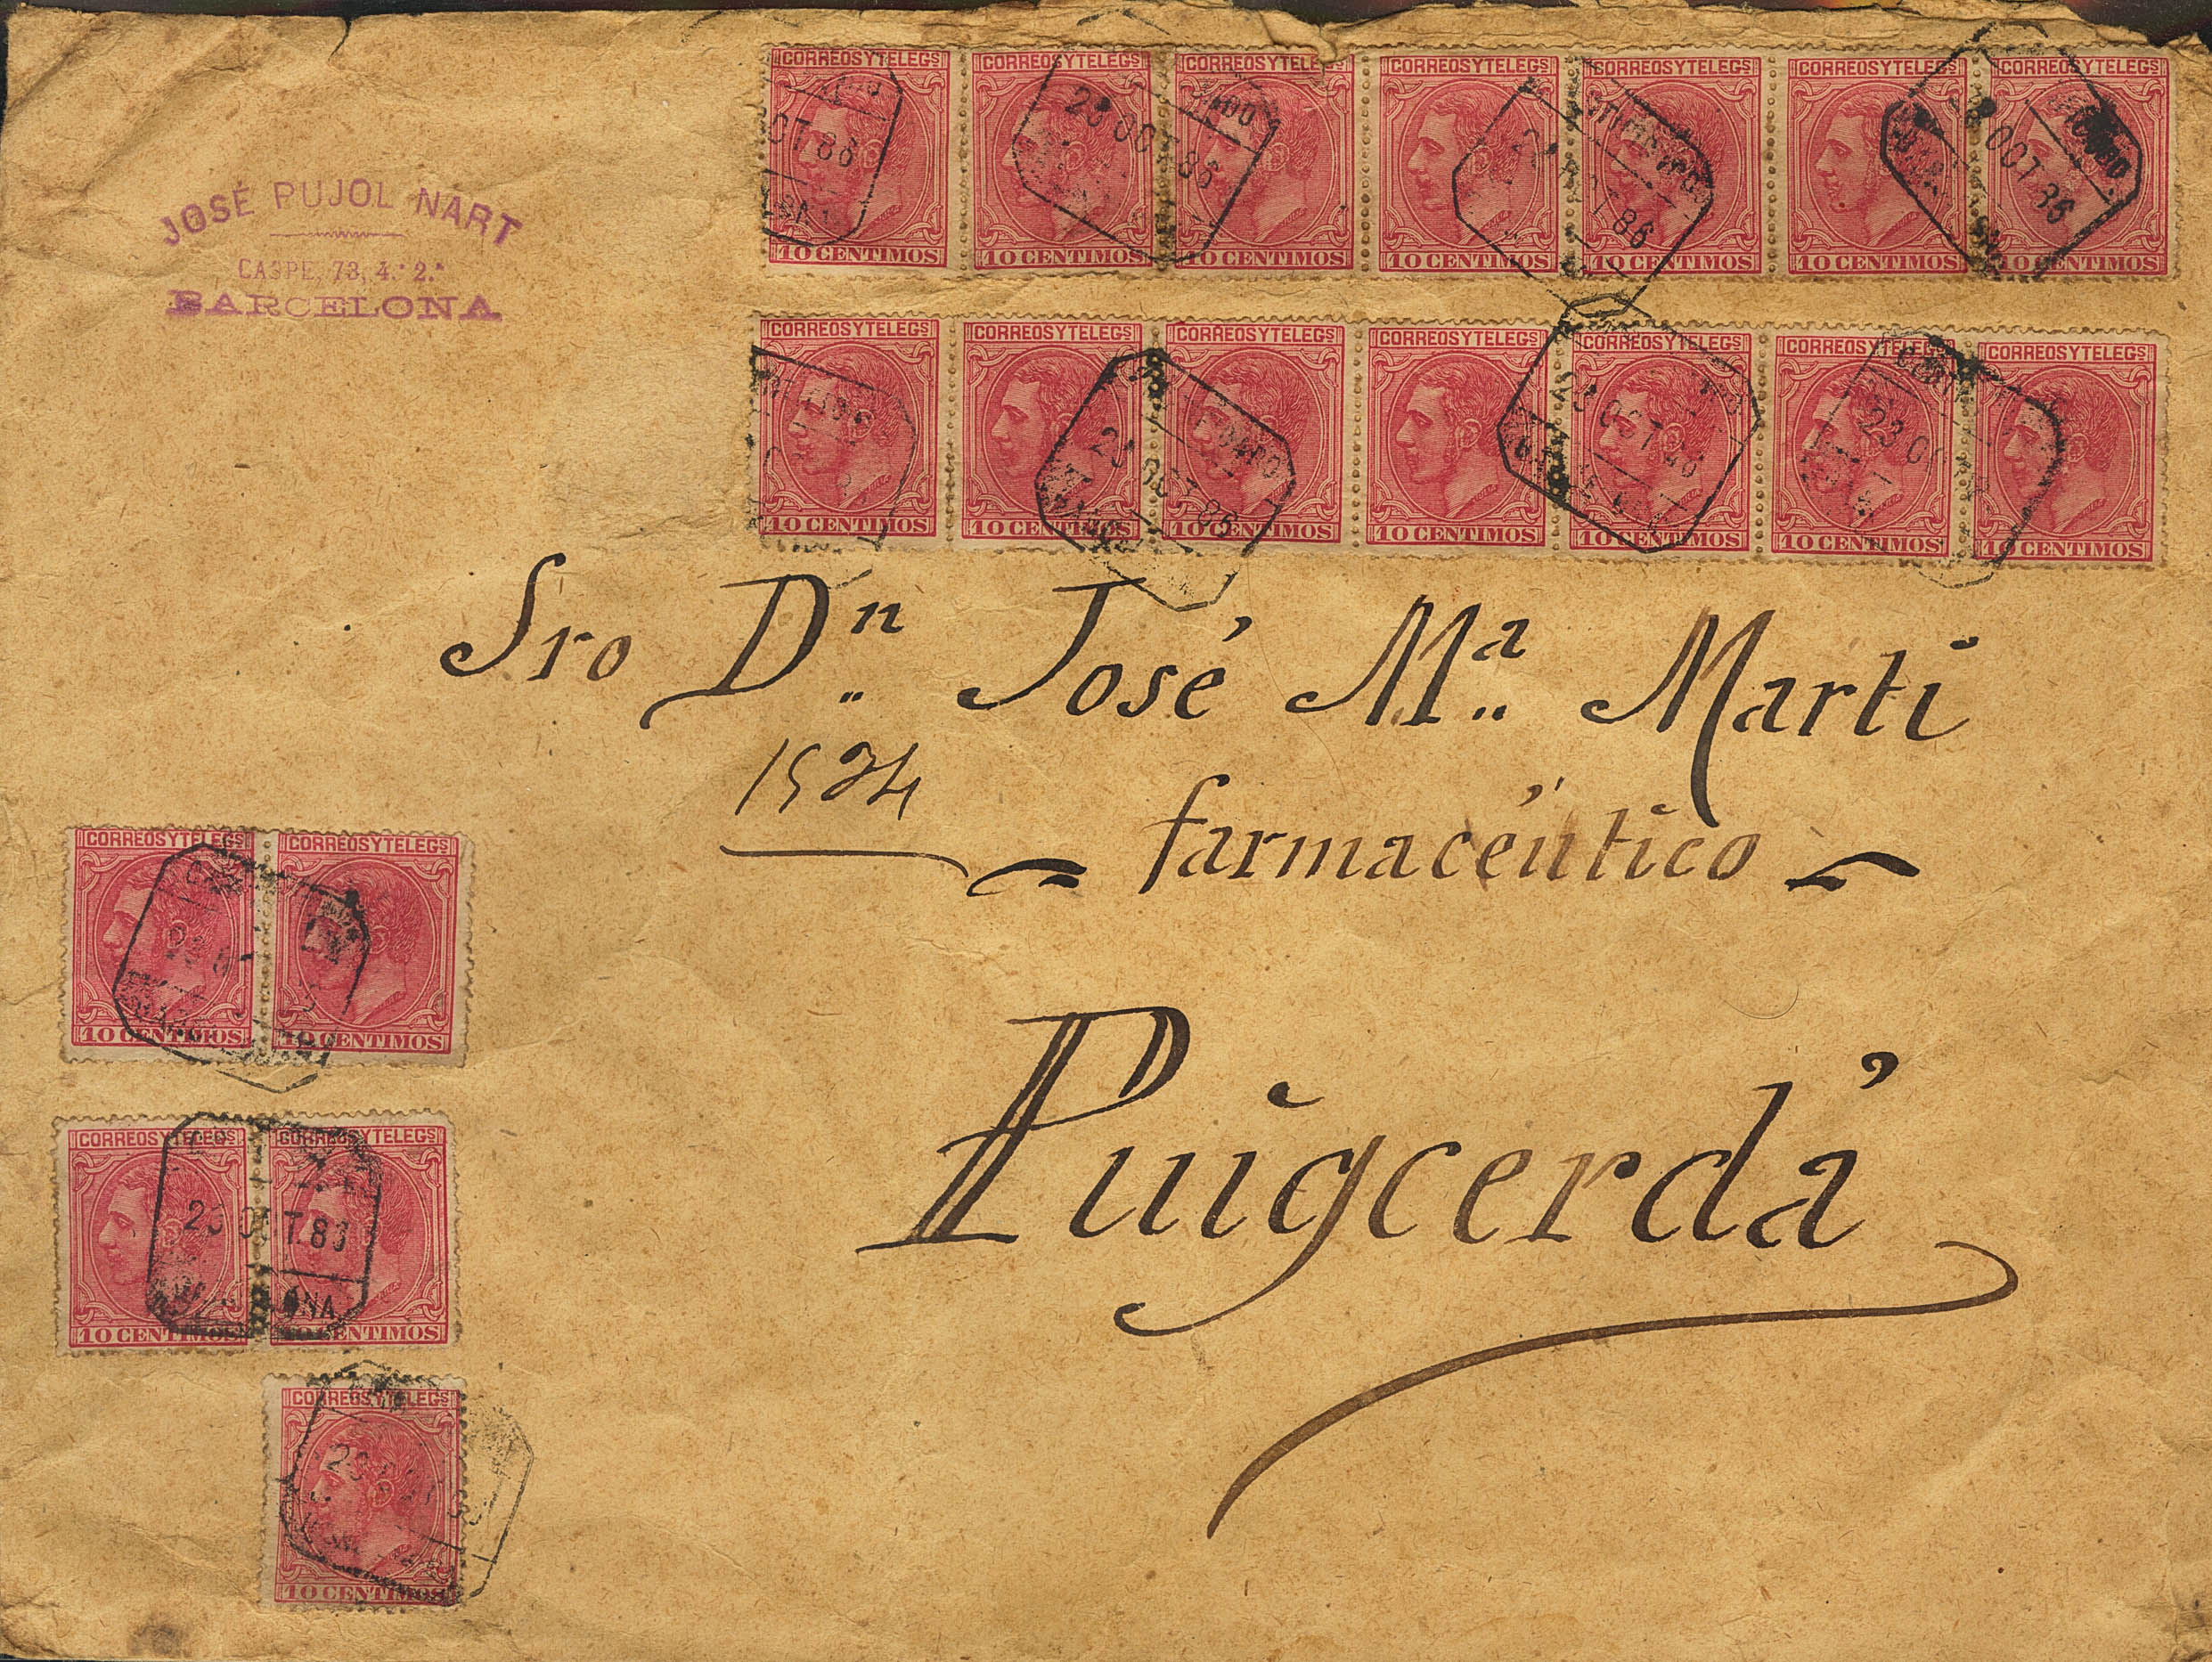 CORREOS Y TELEGS CORREOS Y TELEGS CORREOS Y TELEGS CORREOS Y TELEGS CORREOS Y TELEGS CORREOS Y TELEGS CORREOS Y TELEGS
OCT 86
23 OCT 86
OCT 86
OCT 86
10 CENTIMOS 10 CENTIMOS 10 CENTIMOS 10 CENTIMOS 10 CENTIMOS 10 CENTIMOS 10 CENTIMOS
JOSÉ PUJOL NART
CASPE, 73, 4.º 2.ª
BARCELONA
CORREOS Y TELEGS CORREOS Y TELEGS CORREOS Y TELEGS CORREOS Y TELEGS CORREOS Y TELEGS CORREOS Y TELEGS CORREOS Y TELEGS
23 OCT 86
23 OCT 86
10 CENTIMOS 10 CENTIMOS 10 CENTIMOS 10 CENTIMOS 10 CENTIMOS 10 CENTIMOS 10 CENTIMOS
Sro Dn José Mª Marti
1524
farmacéutico
Puigcerdá
CORREOS Y TELEGS CORREOS Y TELEGS
10 CENTIMOS 10 CENTIMOS
CORREOS Y TELEGS CORREOS Y TELEGS
23 OCT. 86
10 CENTIMOS 10 CENTIMOS
CORREOS Y TELEGS
10 CENTIMOS